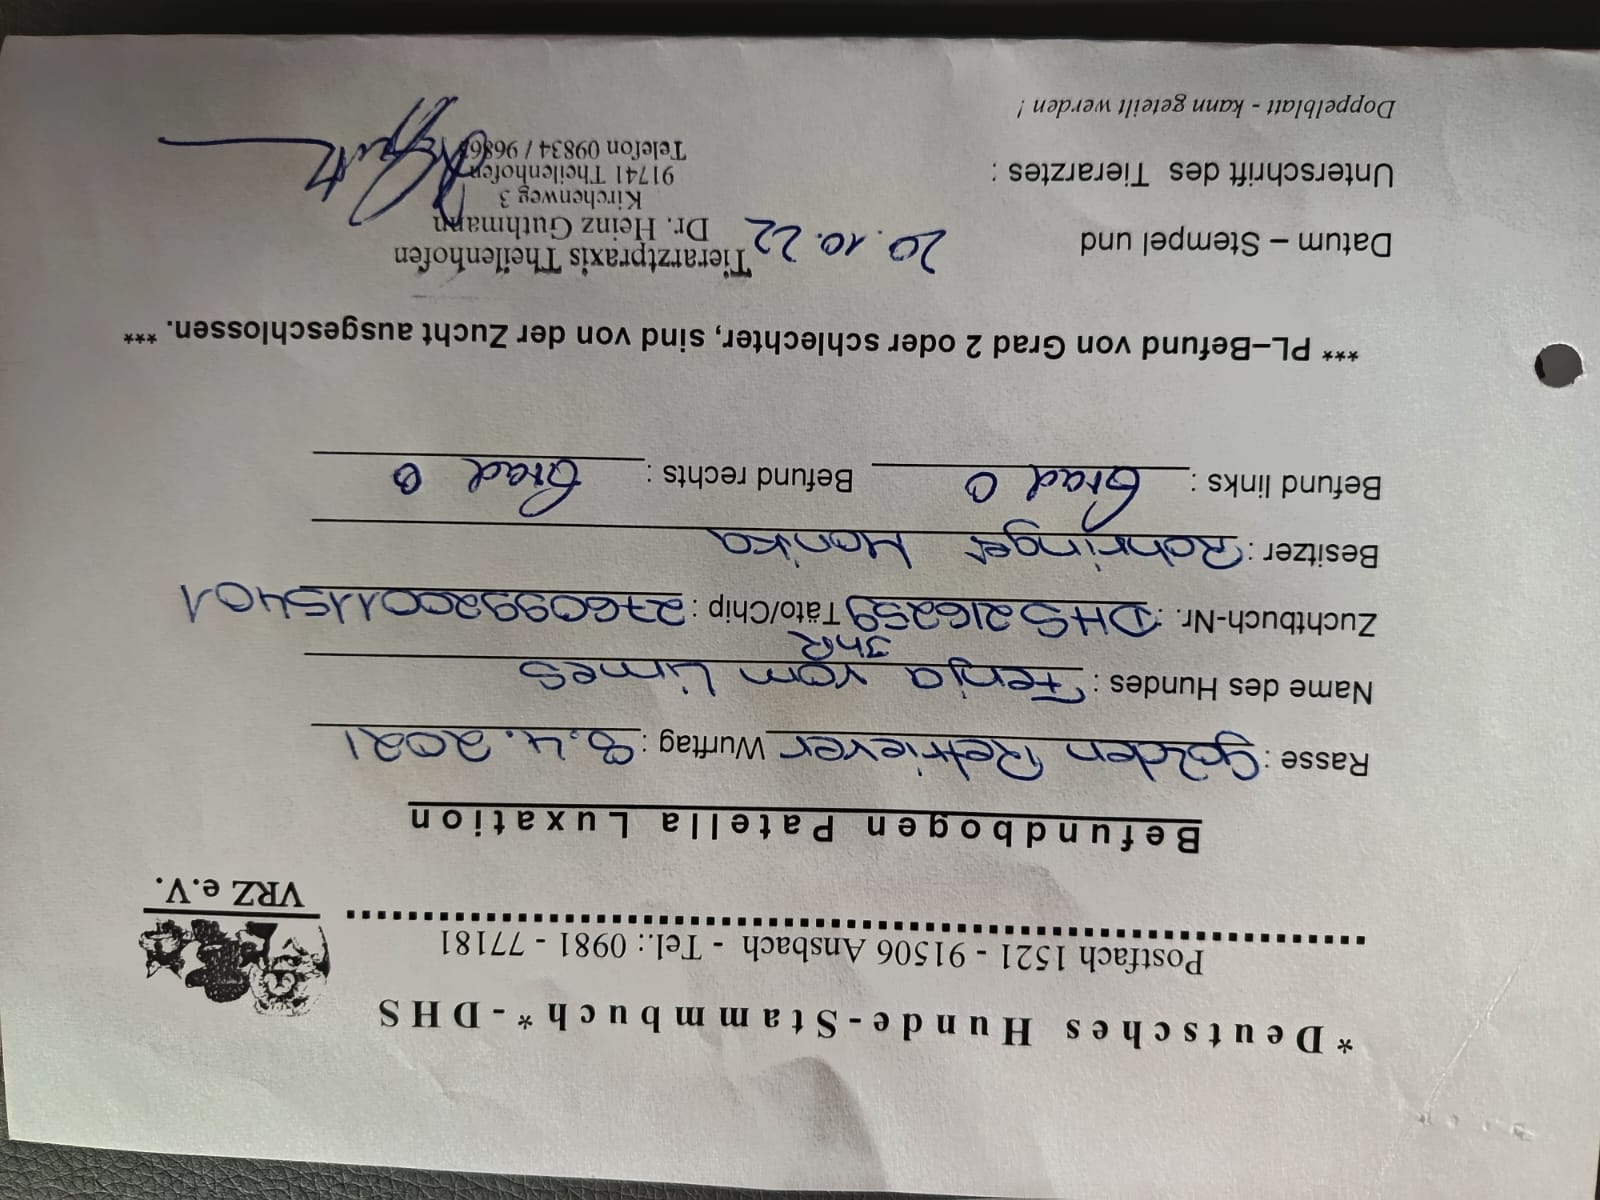 *Deutsches Hunde-Stammbuch*-DHS
Postfach 1521 - 91506 Ansbach - Tel.: 0981 - 77181
VRZ e.V.
Befundbogen Patella Luxation
Rasse : Golden Retriever Wurftag : 8.4.2021
Name des Hundes : Fenja vom Limes
Zuchtbuch-Nr. : DHS216259 JhR Täto/Chip : 276099200115401
Besitzer : Rohringer Monika
Befund links : Grad 0 Befund rechts : Grad 0
*** PL–Befund von Grad 2 oder schlechter, sind von der Zucht ausgeschlossen. ***
Datum – Stempel und 20.10.22
Tierarztpraxis Theilenhofen
Dr. Heinz Guthmann
Kirchenweg 3
91741 Theilenhofen
Telefon 09834 / 9686
Unterschrift des Tierarztes :
Doppelblatt - kann geteilt werden !